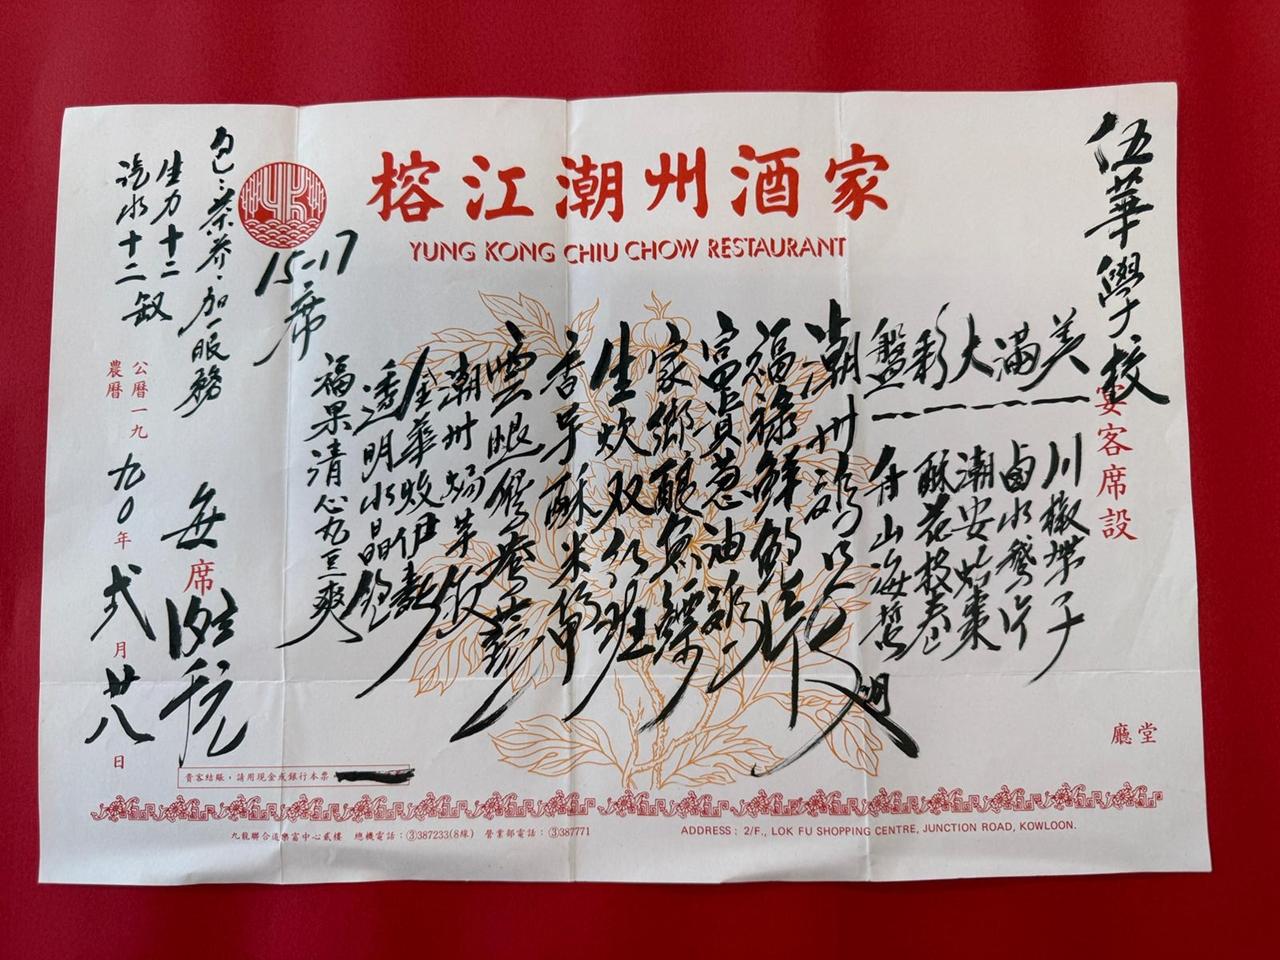 榕江潮州酒家
YUNG KONG CHIU CHOW RESTAURANT
伍華學校
宴客席設
廳堂
美滿大彩盤
川椒帶子
鹵水鵝片
潮安蚧棗
酥花枝卷
舟山海蜇
潮州
福祿鮮
富貴葱油
家鄉釀魚鰾
生炊双
香芋酥米
雲腿
潮州焗羊
金華炆伊麵
透明水晶飽
福果清心丸豆爽
15-17席
包:茶芥·加一服務
生力十二
汽水十二
每席
公曆一九九0年弍月廿八日
農曆
貴客結賬·請用現金或銀行本票
九龍聯合道樂富中心貳樓 總機電話:③387233(8線) 營業部電話:③387771
ADDRESS: 2/F., LOK FU SHOPPING CENTRE, JUNCTION ROAD, KOWLOON.